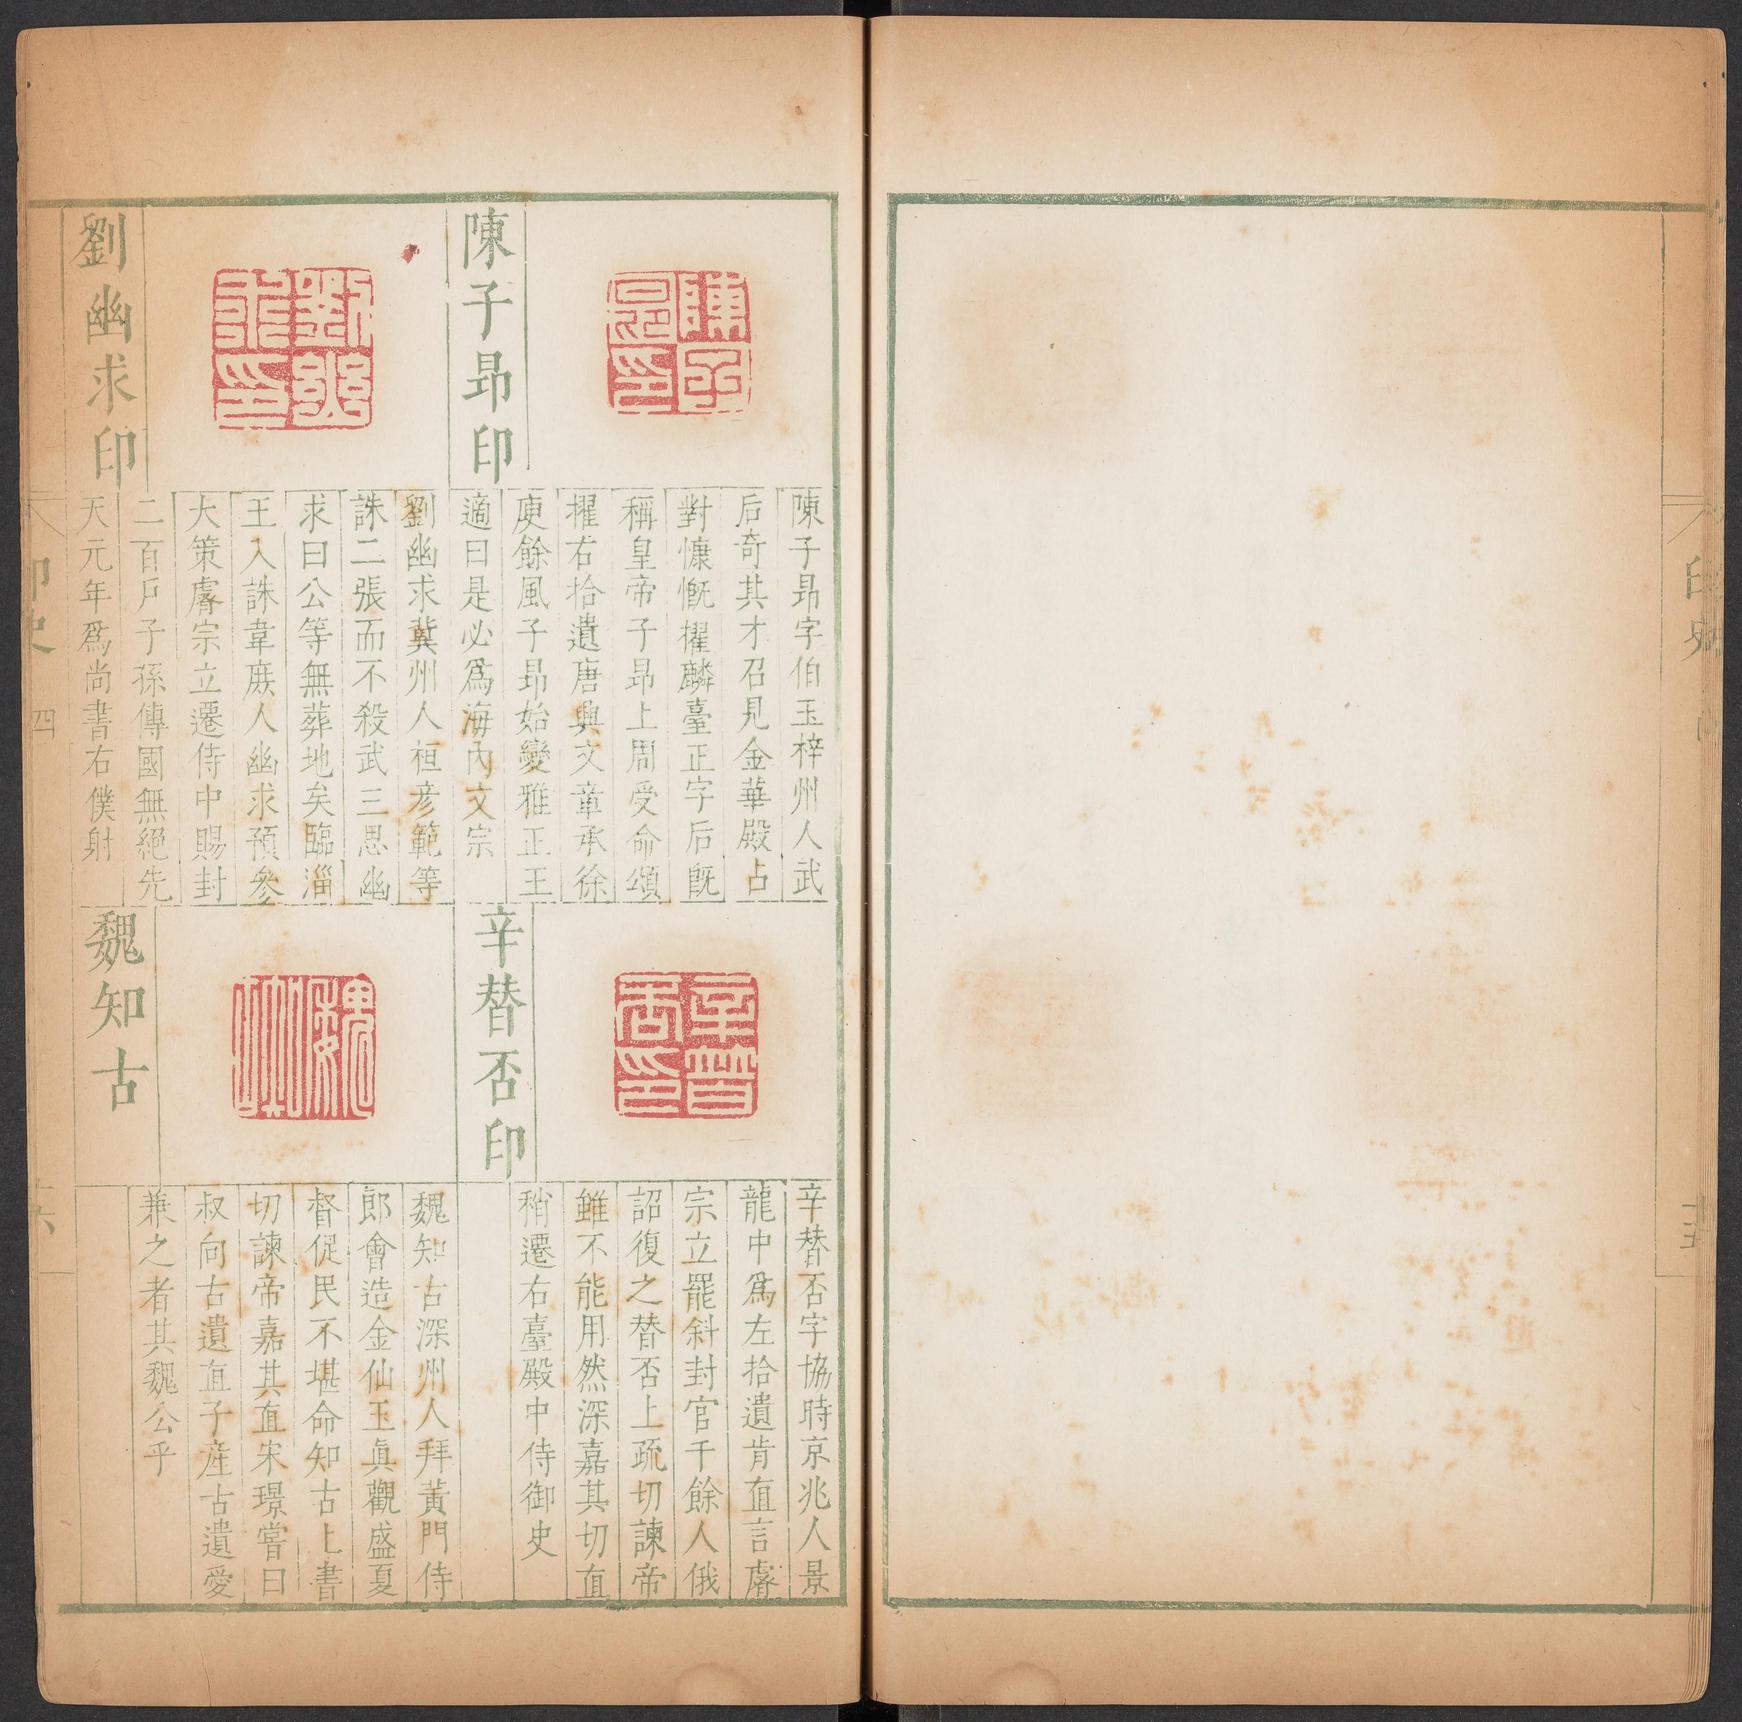 陳子昻印
陳子昻字伯玉梓州人武
后奇其才召見金華殿占
對慷慨擢麟臺正字后既
稱皇帝子昻上周受命頌
擢右拾遺唐興文章承徐
庾餘風子昻始變雅正王
適曰是必爲海內文宗
劉幽求印
劉幽求冀州人桓彥範等
誅二張而不殺武三思幽
求曰公等無葬地矣臨淄
王入誅韋庶人幽求預參
大策睿宗立遷侍中賜封
二百戶子孫傳國無絕先
天元年爲尚書右僕射
辛替否印
辛替否字協時京兆人景
龍中爲左拾遺肯直言睿
宗立罷斜封官千餘人俄
詔復之替否上疏切諫帝
雖不能用然深嘉其切直
稍遷右臺殿中侍御史
魏知古
魏知古深州人拜黃門侍
郎會造金仙玉眞觀盛夏
督促民不堪命知古上書
切諫帝嘉其直宋璟嘗曰
叔向古遺直子產古遺愛
兼之者其魏公乎
印史
四